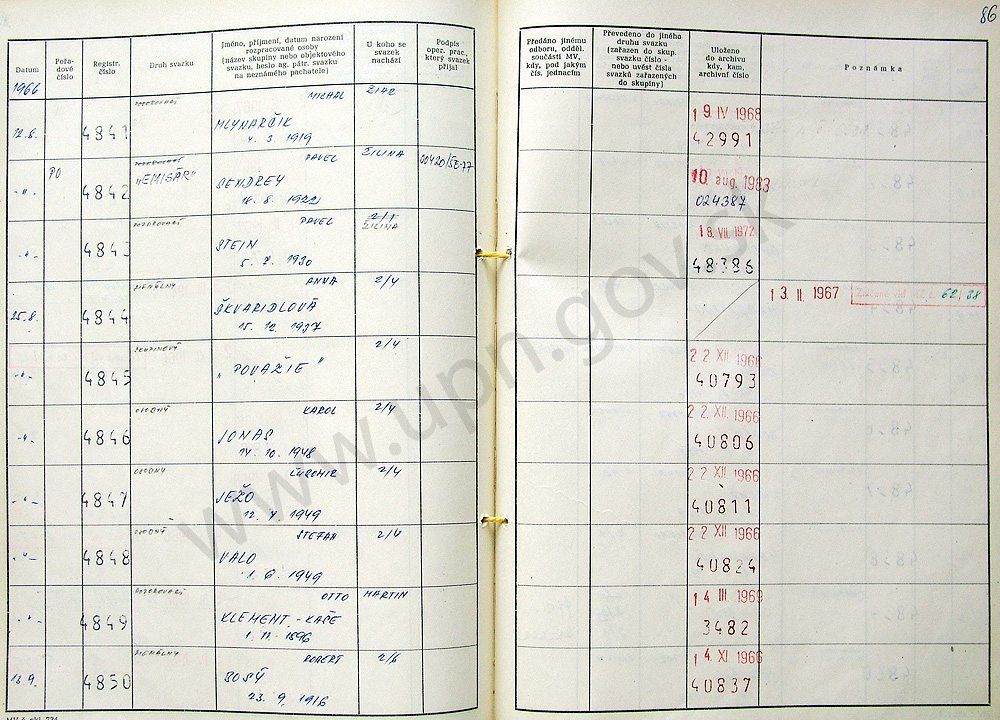 86
Datum
Pořa-
dové
číslo
Registr.
číslo
Druh svazku
Jméno, příjmení, datum narození
rozpracované osoby
(název skupiny nebo objektového
svazku, heslo ag. pátr. svazku
na neznámého pachatele)
U koho se
svazek
nachází
Podpis
oper. prac.,
který svazek
přijal
Předáno jinému
odboru, odděl.
součásti MV,
kdy, pod jakým
čís. jednacím
Převedeno do jiného
druhu svazku
(zařazen do skup.
svazku číslo -
nebo uvést čísla
svazků zařazených
do skupiny)
Uloženo
do archivu
kdy, kam,
archivní číslo
Poznámka
1966
12.8. 4841 MICHAL
MLYNARČIK
4. 3 1919
19 IV 1968
42991
-"- PO 4842 "EMISÁR" PAVEL ŽILINA
SENDREY
1922
10. aug. 1983
024387
-"- 4843 POZOROVACÍ PAVEL 2/1
ŽILINA
STEIN
5. 7. 1930
18. VII. 1972
48386
25.8. 4844 SIGNÁLNY ANNA 2/4
ŠKVARIDLOVÁ
15. 12. 1937
13. II. 1967
62/38
-"- 4845 SKUPINOVÝ 2/4
"POVAŽIE"
22 XII 1966
40793
-"- 4846 OSOBNÝ KAROL 2/4
JONAS
14. 10. 1948
22. XII. 1966
40806
-"- 4847 OSOBNÝ ĽUBOMIR 2/4
JEŽO
12. 4 1949
22 XII 1966
40811
-"- 4848 OSOBNÝ STEFAN 2/4
VALO
1. 6. 1949
22 XII 1966
40824
-"- 4849 POZOROVACÍ OTTO MARTIN
KLEMENT - KAŠE
1. 11. 1896
14 III 1969
3482
13.9. 4850 SIGNÁLNY ROBERT 2/6
BOSÝ
23. 9. 1916
14. XI 1966
40837
www.upn.gov.sk